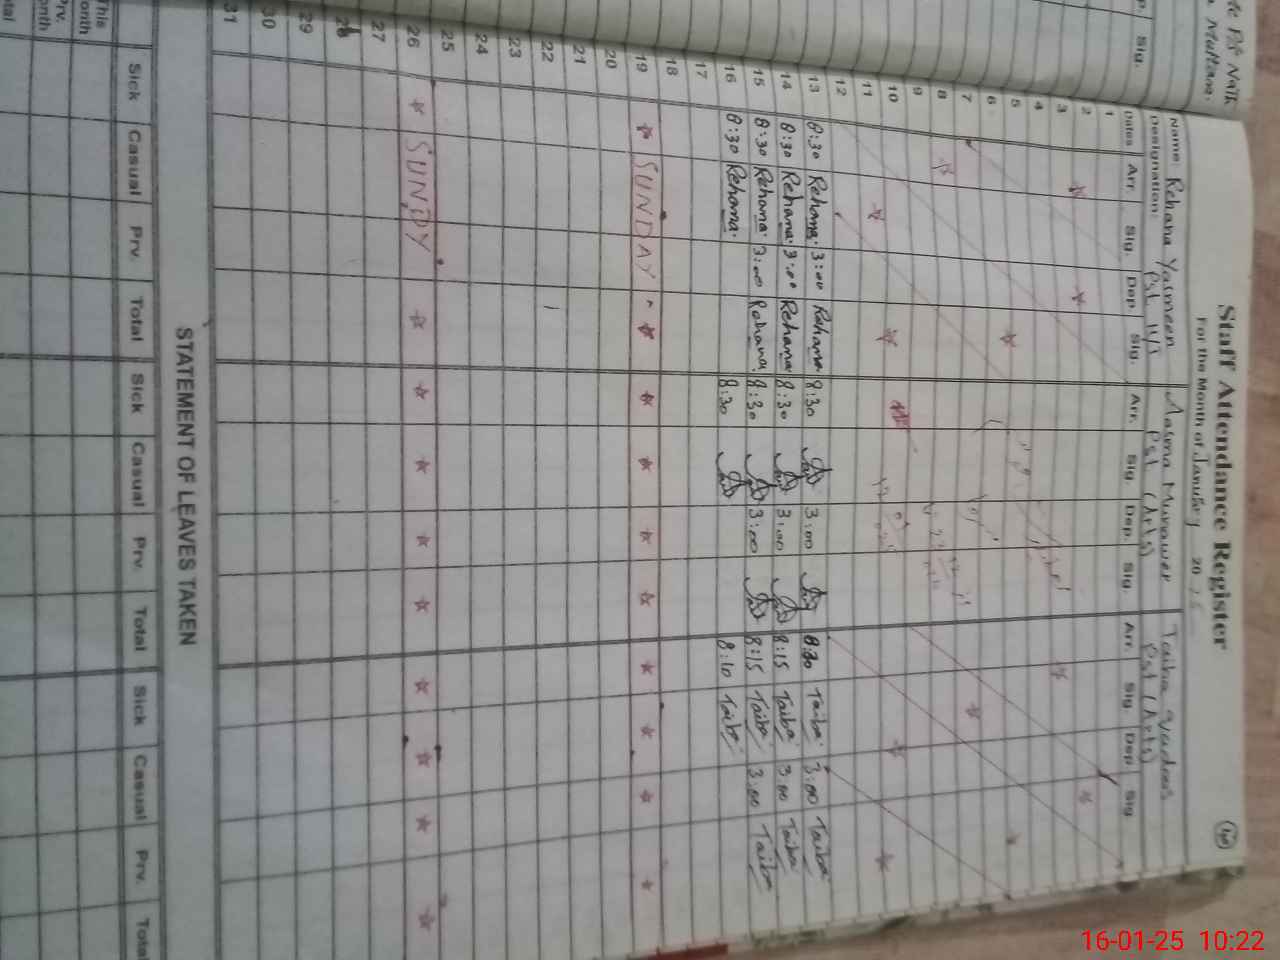 Staff Attendance Register
For the Month of January 20
Name: Rehana Yasmeen Aasma Munawer Taiba
Designation: Pst Pst (Arts) Pst (Arts)
Dates Arr. Sig. Dep. Sig. Arr. Sig. Dep. Sig. Arr. Sig. Dep Sig
1
2
3
4
5
6
7
8
9
10
11
12
13 8:30 Rehana. 3:00 Rehana. 8:30 3:00 8:30 Taiba. 3:00 Taiba.
14 8:30 Rehana. 3:00 Rehana. 8:30 3:00 8:15 Taiba. 3:00 Taiba
15 8:30 Rehana. 3:00 Rehana. 8:30 3:00 8:15 Taiba. 3:00 Taiba
16 8:30 Rehana. 8:30 8:10 Taiba.
17
18
19 SUNDAY
20
21
22
23
24
25
26 SUNDY
27
28
29
30
31
STATEMENT OF LEAVES TAKEN
Sick Casual Prv. Total Sick Casual Prv. Total Sick Casual Prv. Total
This
Sig.
16-01-25 10:22